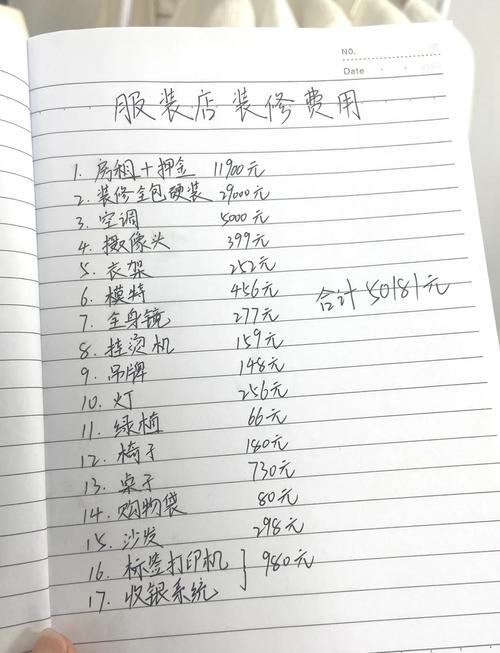 NO.
Date
服装店装修费用
1. 房租+押金 11900元
2. 装修全包硬装 29000元
3. 空调 5000元
4. 摄像头 399元
5. 衣架 252元
6. 模特 456元
7. 全身镜 277元
合计50181元
8. 挂烫机 159元
9. 吊牌 148元
10. 灯 256元
11. 绿植 66元
12. 椅子 180元
13. 桌子 730元
14. 购物袋 80元
15. 沙发 298元
16. 标签打印机
17. 收银系统 } 980元